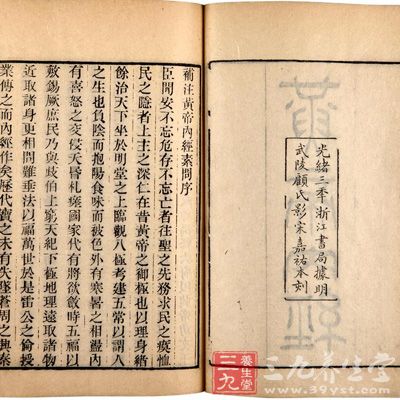 光緒三秊浙江書局據明
武陵顧氏影宋嘉祐本刻
補注黃帝內經素問序
臣聞安不忘危存不忘亡者往聖之先務求民之瘼恤
民之隱者上主之深仁在昔黃帝之御極也以理身緒
餘治天下坐於明堂之上臨觀八極考建五常以謂人
之生也負陰而抱陽食味而被色外有寒暑之相盪內
有喜怒之交侵夭昬札瘥國家代有將欲斂時五福以
敷錫厥庶民乃與歧伯上窮天紀下極地理遠取諸物
近取諸身更相問難垂法以福萬世於是雷公之倫授
業傳之而內經作矣歷代寶之未有失墜蒼周之興秦
三九
養生堂
三九养生堂
www.39yst.com